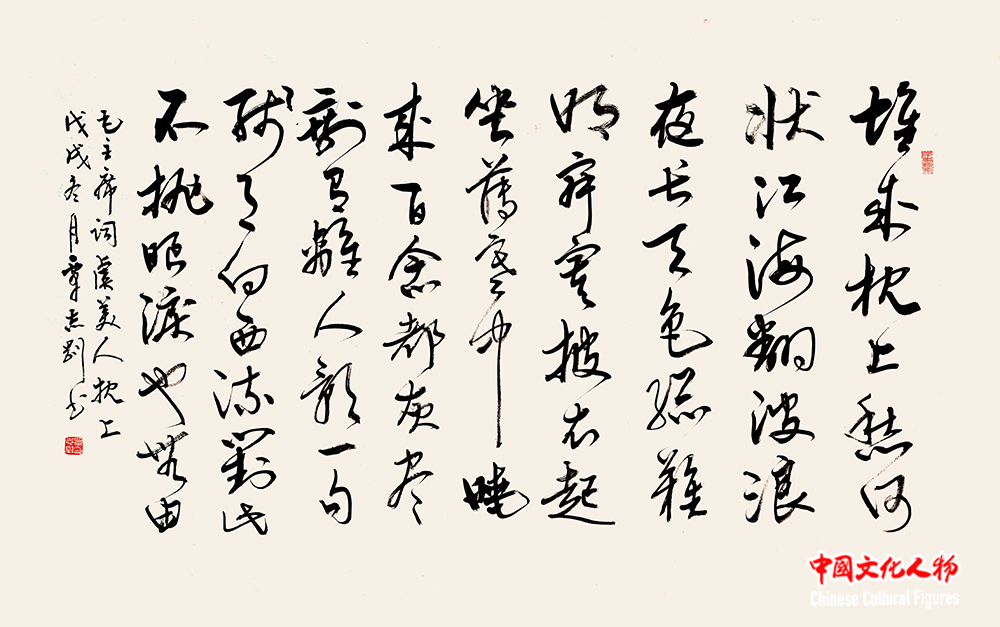 堆来枕上愁何
状江海翻波浪
夜长天色總難
明寂寞披衣起
坐薄寒中晓
来百念都灰尽
剩有離人影一句
残月向西流對此
不抛眼淚也無由
毛主席词虞美人枕上
戊戌冬月覃志刚书
中國文化人物
Chinese Cultural Figures